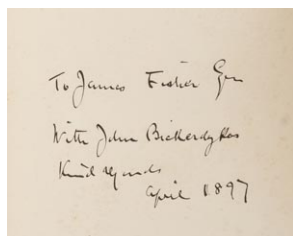 To James Fisher Esq
With John Bickerdykes
Kind regards
April 1897